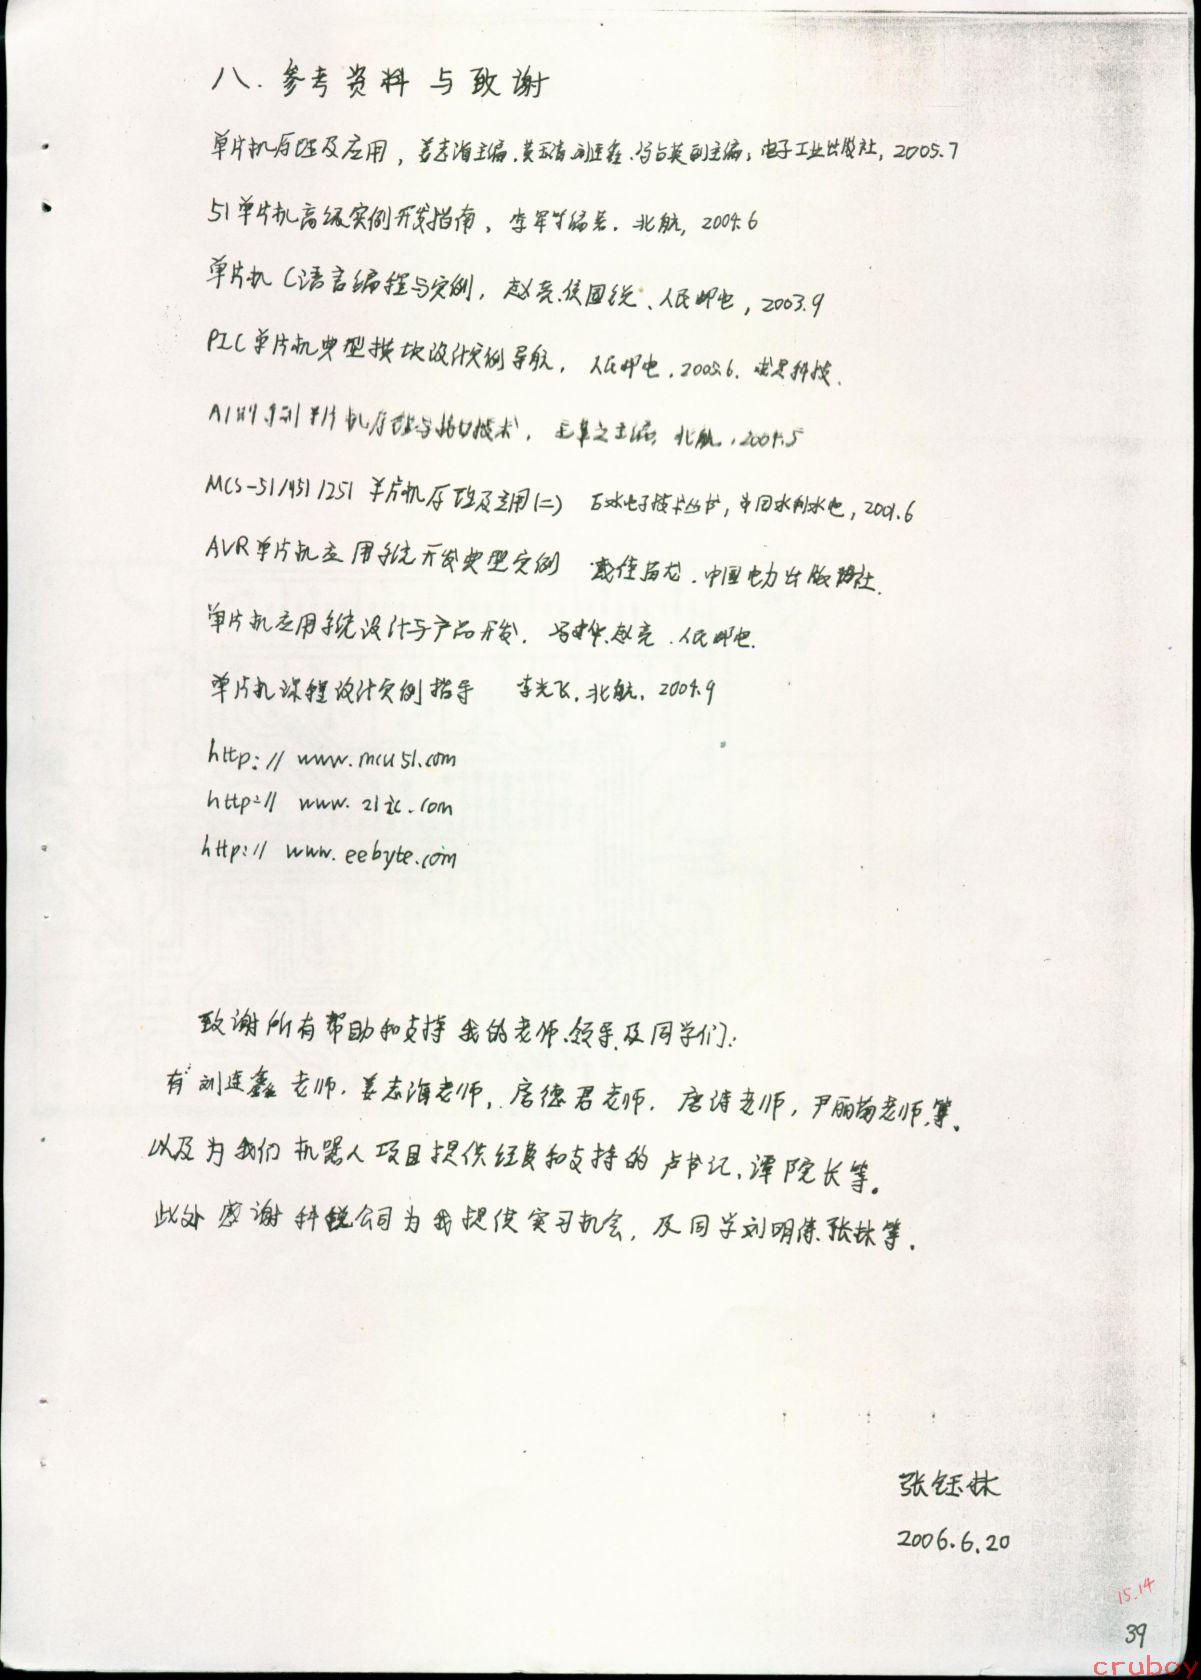 八.参考资料与致谢
单片机原理及应用,姜志海主编.黄玉清刘连鑫.冯占英副主编,电子工业出版社,2005.7
51单片机高级实例开发指南,李军等编著.北航,2004.6
单片机C语言编程与实例,赵亮.侯国锐.人民邮电,2003.9
PIC单片机典型模块设计实例导航,人民邮电.2005.6.求是科技.
单片机原理与接口技术,主编,北航,2004.5
MCS-51/151/251单片机原理及应用(二) 万水电子技术丛书,中国水利水电,2001.6
AVR单片机应用系统开发典型实例 戴佳苗龙.中国电力出版社.
单片机应用系统设计与产品开发.冯建华.赵亮.人民邮电.
单片机课程设计实例指导 李光飞.北航.2004.9
http://www.mcu51.com
http://www.21ic.com
http://www.eebyte.com
致谢所有帮助和支持我的老师.领导及同学们:
有:刘连鑫老师.姜志海老师,唐德君老师.唐诗老师,尹丽菊老师.等.
以及为我们机器人项目提供经费和支持的卢书记,谭院长等。
此处感谢科锐公司为我提供实习机会,及同学刘明伟.张林等.
张钰林
2006.6.20
15.14
39
cruboy